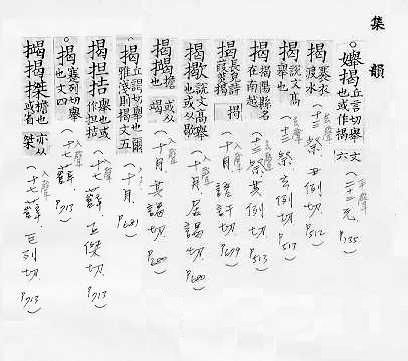 集韻
攑揭 丘言切舉也或作揭 文六
(平聲 二十二元 P135)
揭 褰衣渡水
(去聲 十三祭 丑例切 P512)
揭 說文高舉也
(去聲 十三祭 去例切 P513)
揭 揭陽縣名在南越
(去聲 十三祭 其例切 P513)
揭 長皃詩葭菼揭揭
(入聲 十月 語訐切 P679)
揭歇 說文高舉也或从歇
(入聲 十月 居謁切 P680)
揭 擔也 或从竭
(入聲 十月 其謁切 P680)
揭 丘謁切舉也爾雅淺則揭文五
(入聲 十月 P681)
揭担拮 舉也或作担拮
(入聲 十七薛 丘傑切 P713)
揭 蹇列切舉也文四
(入聲 十七薛 P713)
揭揭桀 擔也或省 亦从桀
(入聲 十七薛 巨列切 P713)